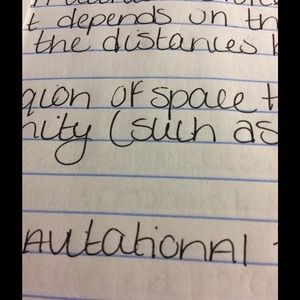 t depends on th
the distances
gion of space t
nity (such as
avitational